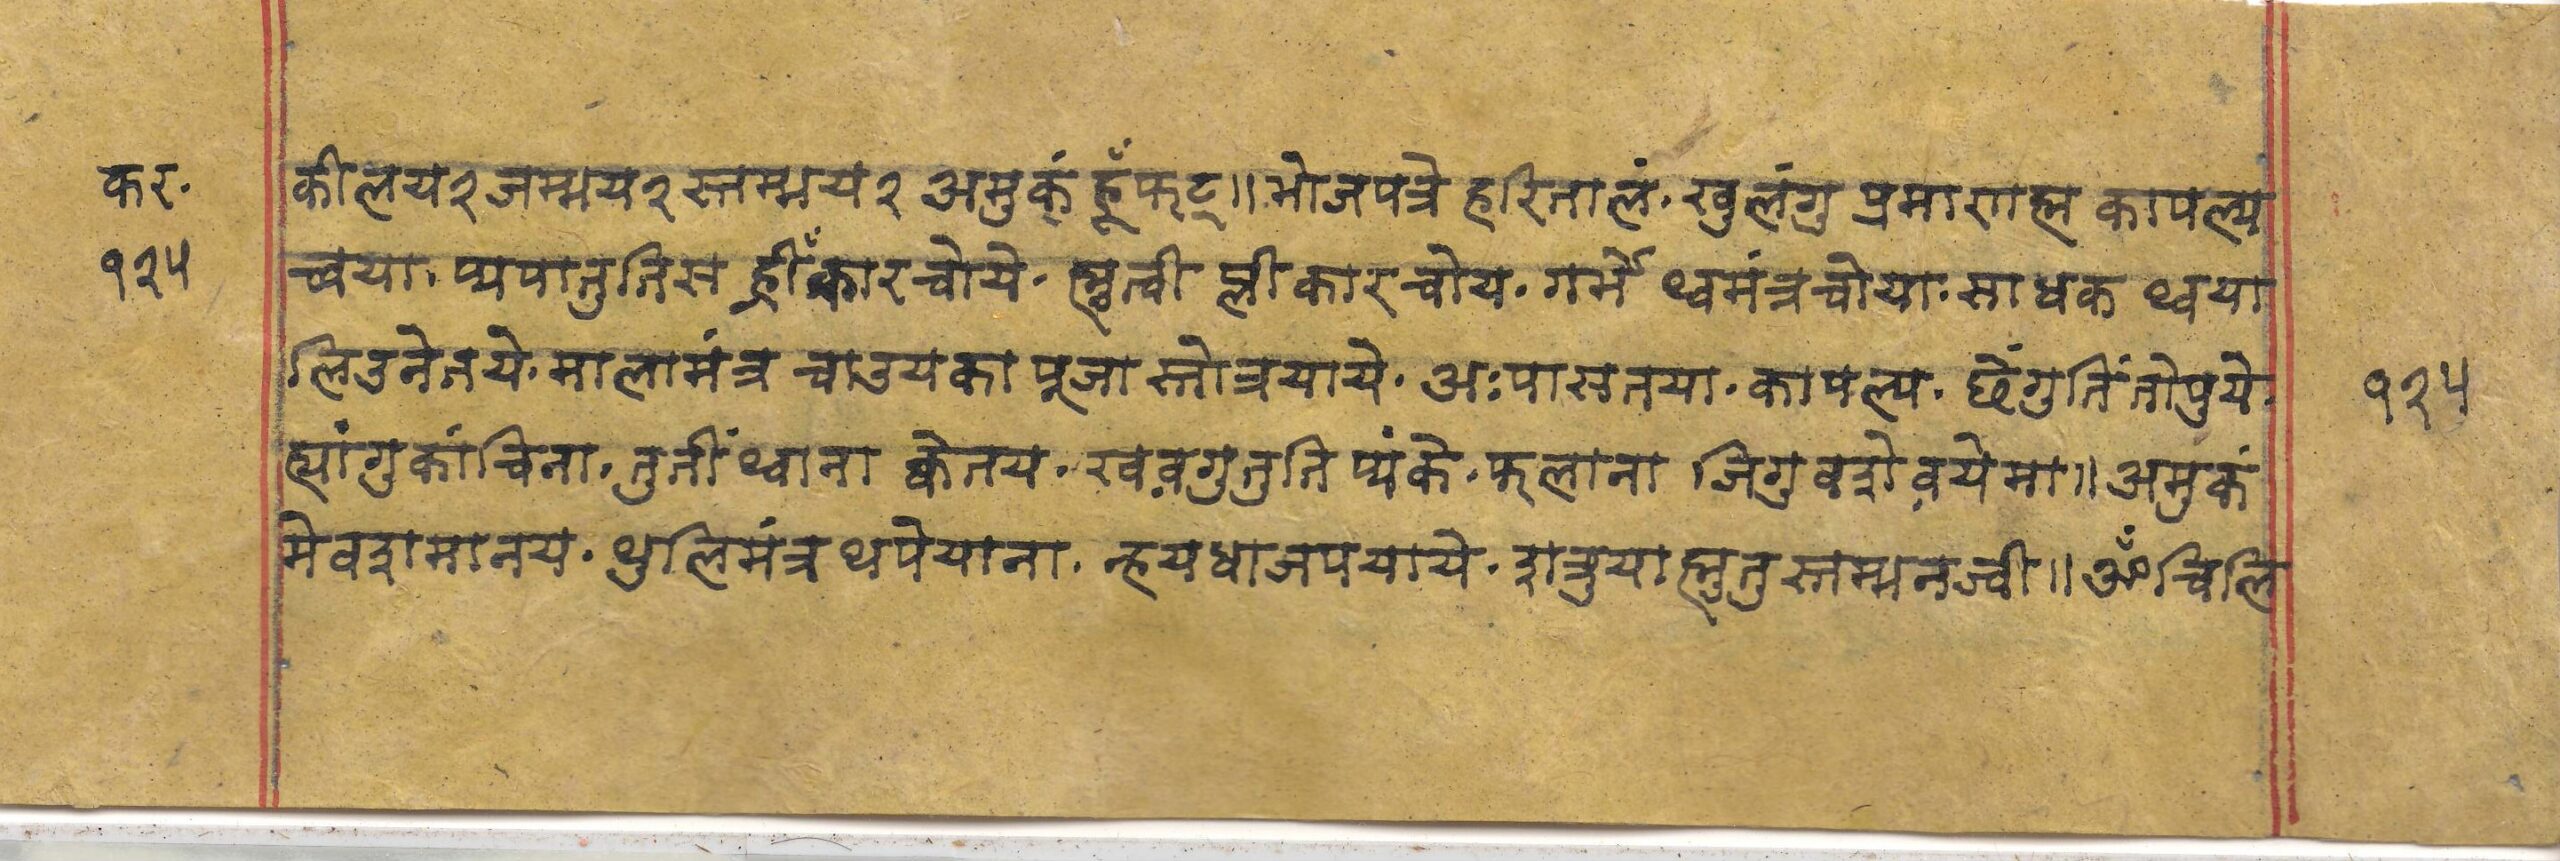 कर. कीलय२ जम्भय२ स्तम्भय२ अमुकं हूँ फट्॥ भोजपत्रे हरितालं. खुलंगु प्रमाणह्म कापल्य
१२५ च्वया. प्यपातुतिस ह्रीँकारच्चोये. ह्मुत्वी ह्लीकारच्चोय. गर्भे थ्वमंत्रच्चोया. साधक थ्वया
लिउनेतये. मालामंत्र च्वाउयका पूजा स्तोत्रयाये. अःपासतया. कापल्य. छेँगुतिंतोपुये. १२५
ह्यांगुकांचिना. तुतीं थ्वाना क्वेतय. खव़गुतुति प्यंके. फलाना जिगु वशे व़येमा॥ अमुकं
मेवशमानय. थुलिमंत्र थपेयाना. न्हयधाजपयाये. शत्रुया ह्मुतु स्तम्भनज्वी॥ ॐ चिलि